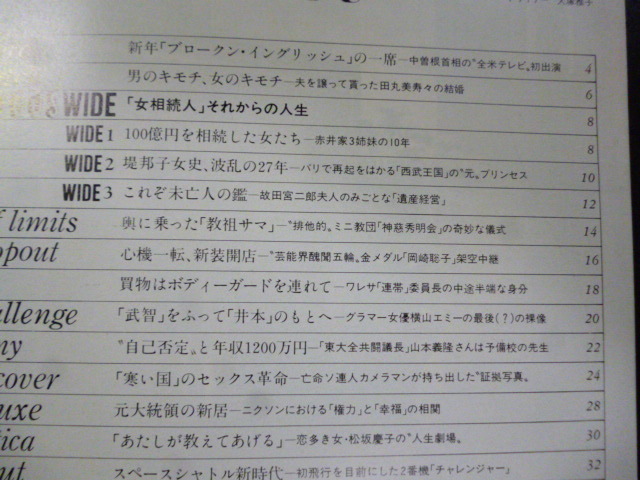 新年「ブロークン・イングリッシュ」の一席―中曽根首相の〝全米テレビ〟初出演 4
男のキモチ、女のキモチ―夫を譲って貰った田丸美寿々の結婚 6
WIDE 「女相続人」それからの人生 8
WIDE 1 100億円を相続した女たち―赤井家3姉妹の10年 8
WIDE 2 堤邦子女史、波乱の27年―パリで再起をはかる「西武王国」の〝元〟プリンセス 10
WIDE 3 これぞ未亡人の鑑―故田宮二郎夫人のみごとな「遺産経営」 12
f limits 輿に乗った「教祖サマ」―〝排他的〟ミニ教団「神慈秀明会」の奇妙な儀式 14
opout 心機一転、新装開店―〝芸能界醜聞五輪〟金メダル「岡崎聡子」架空中継 16
買物はボディーガードを連れて―ワレサ「連帯」委員長の中途半端な身分 18
allenge 「武智」をふって「井本」のもとへ―グラマー女優横山エミーの最後(?)の裸像 20
ny 〝自己否定〟と年収1200万円―「東大全共闘議長」山本義隆さんは予備校の先生 22
cover 「寒い国」のセックス革命―亡命ソ連人カメラマンが持ち出した〝証拠写真〟 24
uxe 元大統領の新居―ニクソンにおける「権力」と「幸福」の相関 28
ica 「あたしが教えてあげる」―恋多き女・松坂慶子の〝人生劇場〟 30
out スペースシャトル新時代―初飛行を目前にした2番機「チャレンジャー」 32